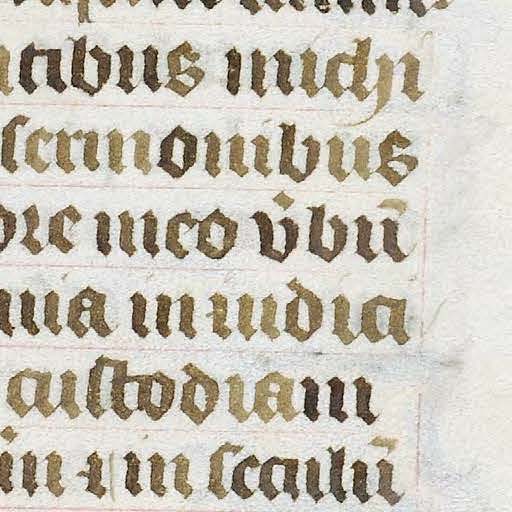 tibus michi
sermonibus
ore meo v̇bū
uia in iudicia
custodiam
in ⁊ in seculū